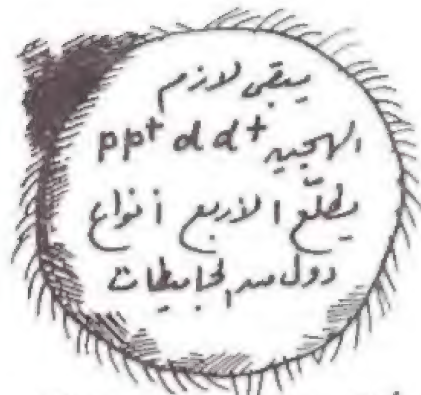 يبقى لازم
الهجين pp⁺ d d⁺
يطلّع الاربع أنواع
دول من الجاميطات